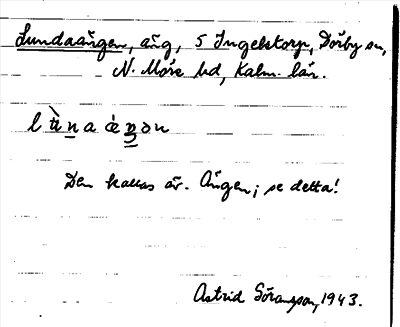 Lundaängen, äng, S Ingelstorp, Dörby sn,
N. Möre hd, Kalm. län.
Den kallas äv. Ängen; se detta!
Astrid Göransson, 1943.